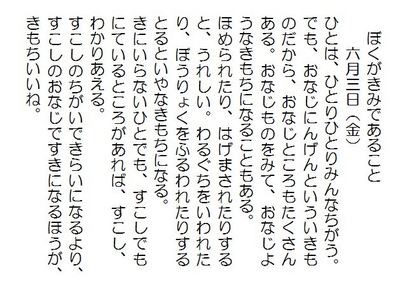 ぼくがきみであること
六月三日（金）
ひとは、ひとりひとりみんなちがう。
でも、おなじにんげんといういきも
のだから、おなじところもたくさん
ある。おなじものをみて、おなじよ
うなきもちになることもある。
ほめられたり、はげまされたりする
と、うれしい。わるぐちをいわれた
り、ぼうりょくをふるわれたりする
とるといやなきもちになる。
きにいらないひとでも、すこしでも
にているところがあれば、すこし、
わかりあえる。
すこしのちがいできらいになるより、
すこしのおなじですきになるほうが、
きもちいいね。